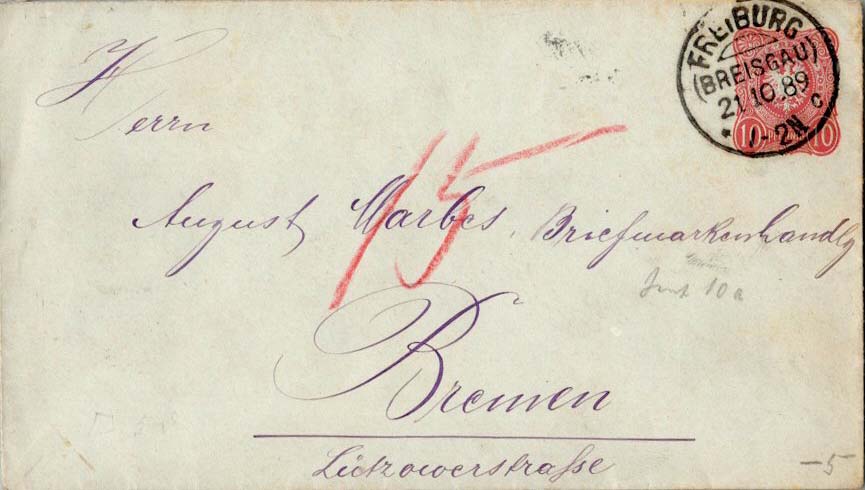 FREIBURG
(BREISGAU)
21.10.89
* 1-2N. c
10 10
Herrn
15
August Marbes, Briefmarkenhandlg
10a
Bremen
Lützowerstraße
-5